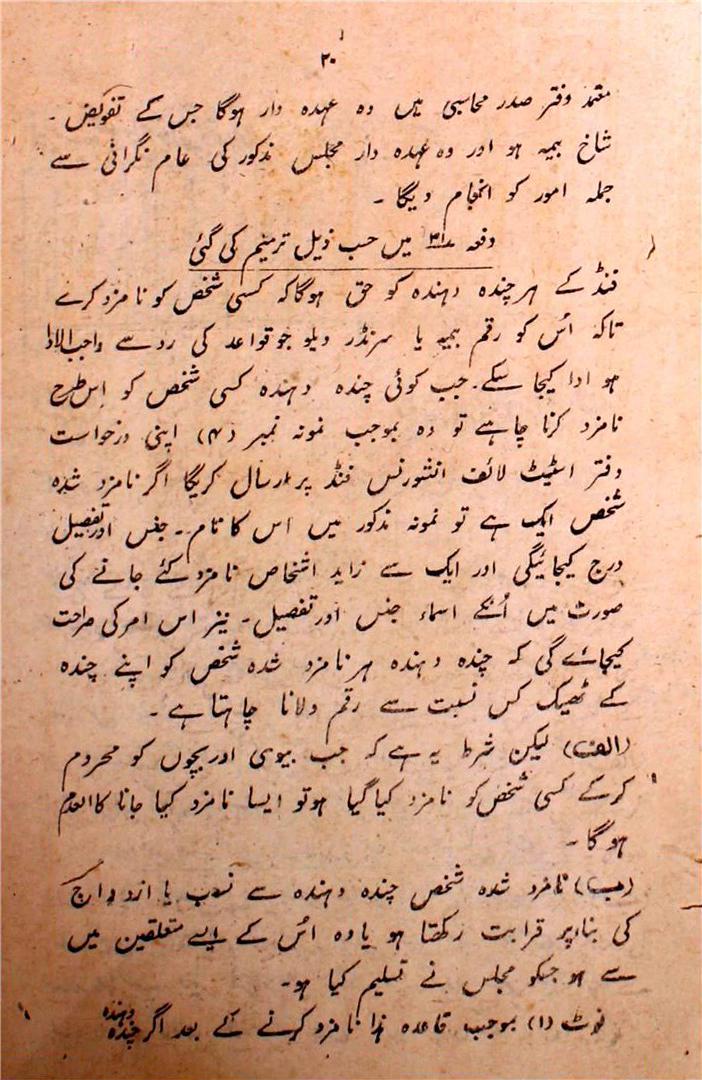 ۲۰
معتمد دفتر صدر محاسبی میں وہ عہدہ دار ہوگا جس کے تفویض ۔
شاخ بیمہ ہو اور وہ عہدہ دار مجلس مذکور کی عام نگرانی سے
جملہ امور کو انجام دیگا ۔
دفعہ ۳۱ میں حسب ذیل ترمیم کی گئی
فنڈ کے ہر چندہ دہندہ کو حق ہوگا کہ کسی شخص کو نامزد کرے
تاکہ اُس کو رقم بیمہ یا سرنڈر ویلو جو قواعد کی رد سے واجب الادا
ہو ادا کیجا سکے ۔ جب کوئی چندہ دہندہ کسی شخص کو اس طرح
نامزد کرنا چاہے تو وہ بموجب نمونہ نمبر (۴) اپنی درخواست
دفتر اسٹیٹ لائف انشورنس فنڈ پر ارسال کریگا اگر نامزد شدہ
شخص ایک ہے تو نمونہ مذکور میں اس کا نام ۔ جنس اور تفصیل
درج کیجائیگی اور ایک سے زاید اشخاص نامزد کئے جانے کی
صورت میں اُنکے اسماء جنس اور تفصیل ۔ نیز اس امر کی صراحت
کیجائے گی کہ چندہ دہندہ ہر نامزد شدہ شخص کو اپنے چندہ
کے ٹھیک کس نسبت سے رقم دلانا چاہتا ہے ۔
(الف) لیکن شرط یہ ہے کہ جب بیوی اور بچوں کو محروم
کرکے کسی شخص کو نامزد کیا گیا ہو تو ایسا نامزد کیا جانا کالعدم
ہو گا ۔
(ب) نامزد شدہ شخص چندہ دہندہ سے نسب یا ازدواج
کی بناء پر قرابت رکھتا ہو یا وہ اُس کے ایسے متعلقین میں
سے ہو جسکو مجلس نے تسلیم کیا ہو ۔
نوٹ (۱) بموجب قاعدہ ہذا نامزد کرنے کے بعد اگر چندہ دہندہ